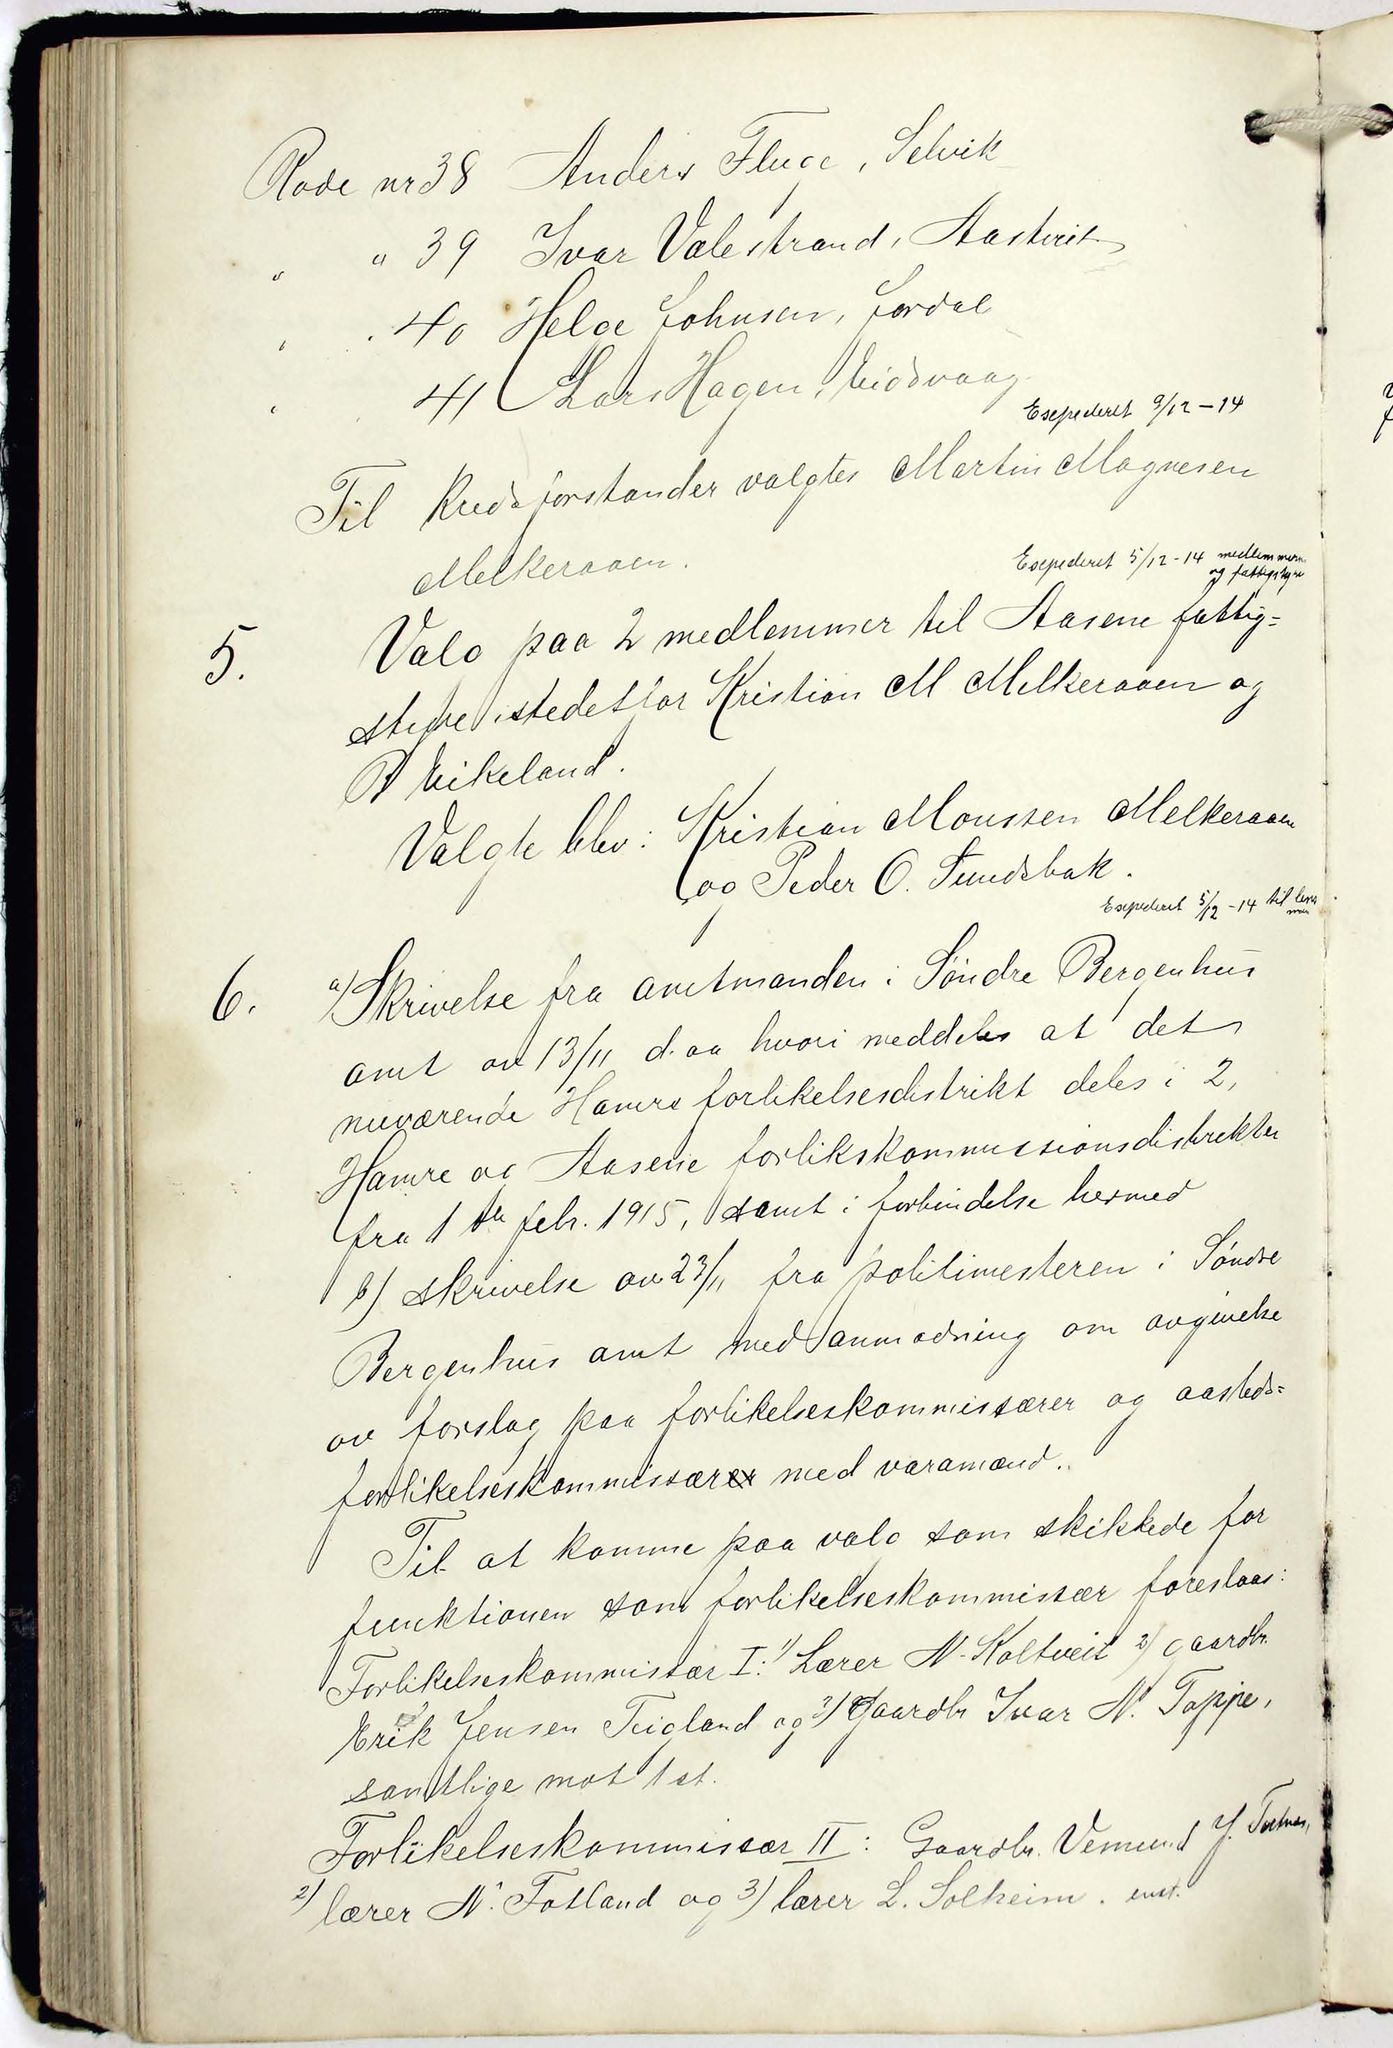 Rode nr 38 Anders Fluge, Selvik
" " 39 Ivar Valestrand, Aastveit
" " 40 Helge Johnsen, Jordal
" 41 Lars Hagen, Eidsvaag
Expederet 9/12-14
Til Kredsforstander valgtes Martin Magnesen
Melkeraaen.
Expederet 5/12-14 medlemmern
og fattigstyre
5. Valg paa 2 medlemmer til Aasene fattig=
styre istedetfor Kristian M Melkeraaen og
P Eikeland.
Valgte blev: Kristian Monssen Melkeraaen
og Peder O. Tundsbak.
Expederet 5/12-14 til lens
man
6. a) Skrivelse fra amtmanden i Söndre Bergenhus
amt av 13/11 d.aa hvori meddeles at det
nuværende Hamre forlikelsesdistrikt deles i 2,
Hamre og Aasene forlikskommissionsdistrikter
fra 1ste febr. 1915, samt i forbindelse hermed
b) skrivelse av 23/11 fra politimesteren i Söndre
Bergenhus amt med anmodning om avgivelse
av forslag paa forlikelseskommissærer og aasteds=
forlikelseskommissærer med varamænd.
Til at komme paa valg som skikkede for
funktionen som forlikelseskommissær foreslaas:
Forlikelseskommissær I: 1) Lærer N. Koltveit 2) gaardbr.
Erik Jensen Teigland og 3) Gaardbr Ivar N. Toppe,
samtlige mot 1 st.
Forlikelseskommissær II: Gaardbr. Vemund J. Tertnæs,
2) lærer N. Fotland og 3) lærer L. Solheim. enst.